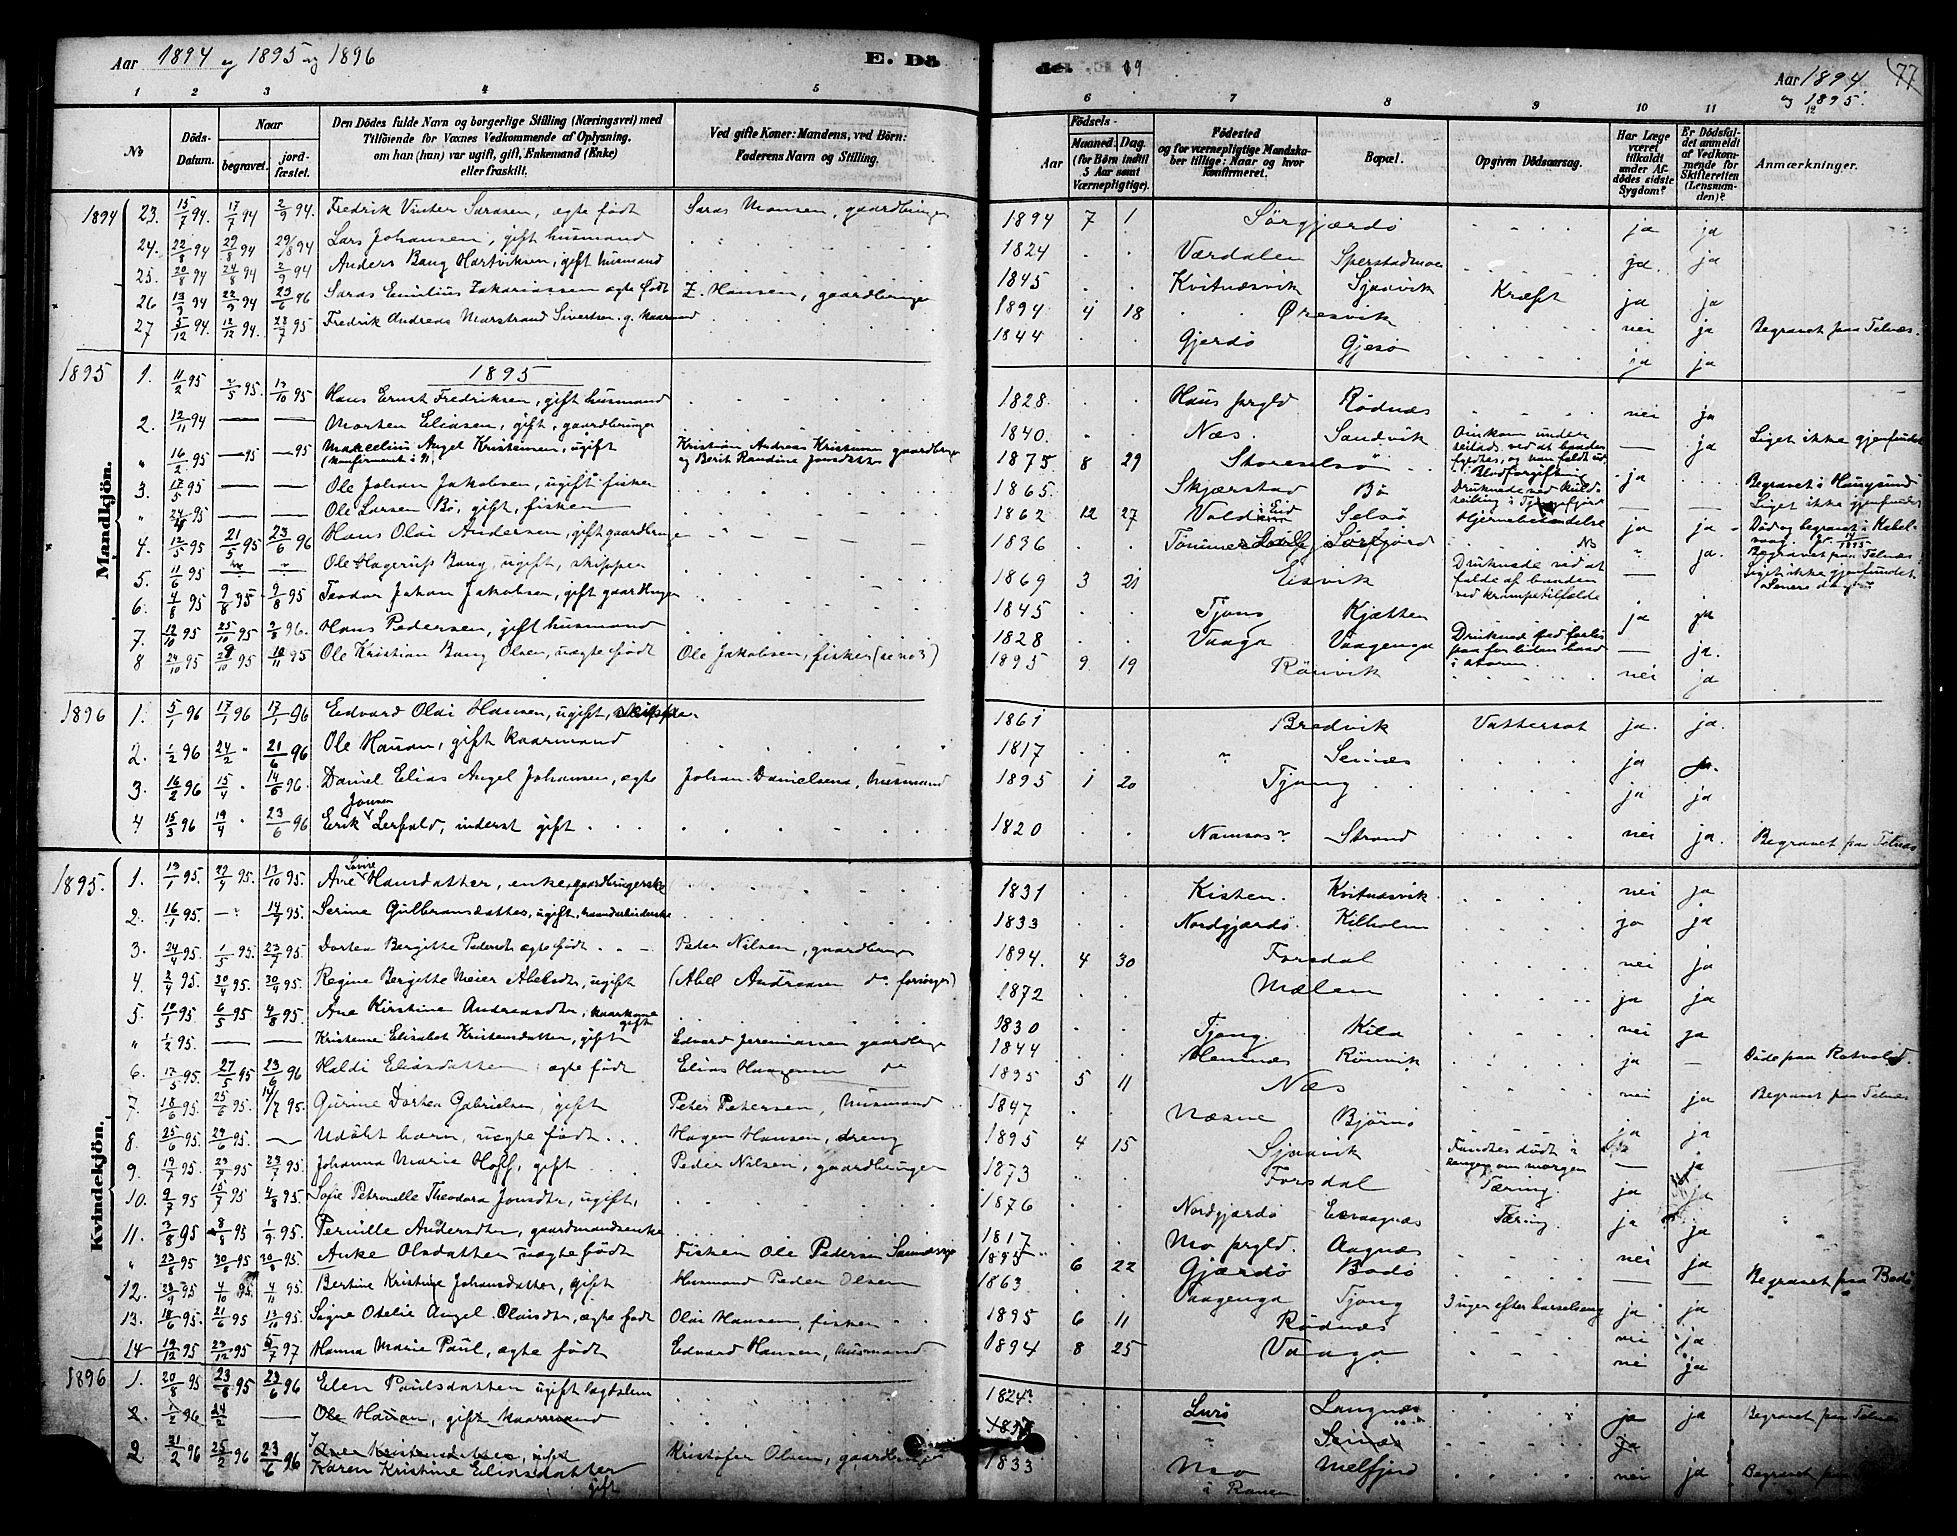 Aar 1894 og 1895 og 1896
E. Dö
de. 19
Aar 1894 og 1895.
77
1 2 3 4 5
6 7 8 9 10 11 12
No
Döds-Datum.
Naar
begravet.
jord-fæstet.
Den Dödes fulde Navn og borgerlige Stilling (Næringsvei) med
Tilföiende for Voxnes Vedkommende af Oplysning,
om han (hun) var ugift, gift, Enkemand (Enke)
eller fraskilt.
Ved gifte Koner: Mandens, ved Börn:
Faderens Navn og Stilling.
Födsels-
Aar
Maaned. Dag.
(for Börn indtil
5 Aar samt
Værnepligtige).
Födested
og for værnepligtige Mandska-
ber tillige: Naar og hvor
konfirmeret.
Bopæl.
Opgiven Dödsaarsag.
Har Læge
været
tilkaldt
under Af-
dödes sidste
Sygdom?
Er Dödsfal-
det anmeldt
af Vedkom-
mende for
Skifteretten
(Lensman-
den)?
Anmærkninger.
Mandkjön.
1894 23. 15/7 94. 17/7 94 2/9 94. Fredrik Vinter Sarasen, ægte födt Saras Monsen, gaardbruger 1894 7 1 Sörgjærdö ja ja
24. 22/8 94 29/8 94 29/8 94 Lars Johansen, gift husmand 1824 Værdalen Sperstadmoe ja. ja
25. 20/8 94 24/8 94 2/9 94 Anders Bang Hartviksen, gift husmand 1845 Kvitnæsvik Sjonvik Kræft ja ja
26 13/9 94 22/9 94 23/6 96 Saras Emilius Zakariassen ægte födt Z. Hansen, gaardbruger 1894 4 18 Öresvik nei ja Begravet paa Telnæs.
27 5/12 94. 12/12 94. 28/7 95 Fredrik Andreas Marstrand Sivertsen. g. kaarmand 1844 Gjerdö Gjesö ja ja
1895
1895 1. 11/2 95 2/5 95. 13/10 95 Hans Ernst Fredriksen, gift husmand 1828. Haus prgld Rödnæs nei ja
2. 12/11 94 — — Morten Eliasen, gift, gaardbruger 1840. Næs. Sandvik Omkom under — ja Liget ikke gjenfundet
" 16/2 95 — 95 — 95 Marcelius Angel Kristensen, ugift Kristian Andreas Kristensen gaardbruger
og Berit Randine Jonsdatter 1875 8 29 Storeselsö Blodforgiftning ja Begravet i Haugesund
3. 17/5 95 — — Ole Johan Jakobsen, ugift fisker 1865. Skjærstad Bö Druknede ved — — Liget ikke gjenfundet
" 24 95 — — Ole Larsen Bö, gift, fisker 1862 12 27 Vold Selsö Hjernebetændelse ja ja
4. 12/5 95 21/5 95 23/6 96 Hans Olai Andersen, gift gaardbruger 1836 Sörfjord ja. Begravet paa Telnæs
5. 11/6 95 Ole Hagerup Bang, ugift, skipper 1869 3 21 Eisvik Druknede ved at
falde af baaden
ved krampetilfælde — Liget ikke gjenfundet
6. 4/8 95 9/8 95 9/8 95 Teodor Johan Jakobsen, gift gaardbruger 1845 Tjong Kjætten ja ja
7. 19/10 95 25/10 95 2/8 96. Hans Pedersen, gift husmand 1828 Vaaga Vaagenga — ja.
8 24/10 95 29/10 95 10/11 95 Ole Kristian Bang Olsen, uægte födt Ole Jakobsen, fisker (se no 3) 1895 9. 19 Rönvik nei ja
1896 1. 5/1 96 17/1 96 17/1 96 Edvard Olai Hansen, ugift, 1861 Bredvik Vattersot ja. ja.
2. 1/2 96 24/2 " 21/6 96 Ole Hauan, gift kaarmand 1817 " Seinæs ja ja.
3. 16/2 96 15/4 " 14/6 96. Daniel Elias Angel Johansen, ægte Johan Danielsens, husmand 1895 1 20 Tjong ja ja
4 15/3 96 19/4 " 23/6 96 Erik Jonsen Lerfald, inderst gift 1820 Namsos? Strand nei ja. Begravet paa Telnæs
Kvindekjön.
1895. 1. 13/1 95. 29/4 95. 13/10 95. Ane Hansdatter, enke, gaardbrugerske 1831 Kisten. Kvitnæsvik nei ja
2. 16/1 95. — " 14/7 95. Serine Gulbransdatter, ugift, 1833 Nordgjærdö. Kilholm ja ja
3. 24/4 95. 1/5 95. 23/7 95. Dortea Bergitte Pedersdt ægte födt Peder Nilsen, gaardbruger 1894. 4 30 Forsdal nei ja
4. 2/4 95. 30/4 95. 30/4 95. Regine Bergitte Meier Abelsdt, ugift (Abel Andreasen do forsörger) 1872 Mælen ja ja
5. 10/1 95 6/5 95 4/8 95. Ane Kirstine Andreasdt, kaarkone gift 1830 Tjong Kila nei ja
" 1/2 95. — — Kristense Elisabet Kristensdatter, gift Edvard Jeremiassen gaardbruger 1844 Hemnæs Rönvik ja — Döde paa Rotvold.
6. 17/5 95. 27/5 95 23/6 96 Haldi Eliasdatter, ægte födt Elias Haagensen do 1895 5 11 Næs nei ja Begravet paa Telnæs
7. 18/6 95. 25/6 95. 14/7 95. Gurine Dortea Gabrielsen, gift Peter Petersen, husmand 1847 Næsne Björnö ja ja
8. 25/6 95. 29/6 95. — Udöbt barn, uægte födt Hagen Hansen, dreng 1895 4 15 Sjonvik Fundtes dödt i
sengen om morgen — ja
9. 19/7 95. 23/7 95 23/7 95. Johanna Marie Hoff, gift Peder Nilsen, gaardbruger 1873 Forsdal Tæring. ja ja
10. 9/7 95 15/7 95 4/8 95. Sofie Petronelle Theodora Jonsdtr, ugift, 1876 Nordgjærdö Esvaagnæs Tæring. ja ja
11. 3/8 95 8/8 95 1/9 95. Pernille Andersdtr, gaardmandsenke 1817 Mo prgld. Aagnæs nei ja
" 23/8 95 30/8 95 30/8 95. Anke Olsdatter uægte födt Fisker Ole Pedersen 1895 6 22 Gjærdö Bodö — — Begravet paa Bodö
12. 23/9 95 4/10 95. 4/11 95. Bertine Kristine Johansdatter, gift Husmand Peder Olsen 1863 Vaagenga Tjong 3 uger efter barselseng ja ja
13. 18/6 95. 21/6 95 13/10 95 Signe Otelie Angel Olaisdtr, ægte födt Olai Hansen, fisker 1895 6 11 Rödnæs nei ja
14 19/12 95 29/12 95 5/7 97 Hanna Marie Paul, ægte födt Edvard Hansen, husmand 1894 8 25 Vaaga nei ja
1896 1. 20/8 95 23/8 95 23/6 96 Elen Paulsdatter ugift lægdslem 1824? Lurö Langnæs ja ja Begravet paa Telnæs
2. 1/2 96 24/2 — Ole Hauan, gift kaarmand 1817 " Seinæs ja
2. 21/2 96 25/2 96 23/6 96 Karen Kristine Eliasdatter gift Kristofer Olsen, gaardbruger 1833 Mo i Ranen Melfjord nei ja Begravet paa